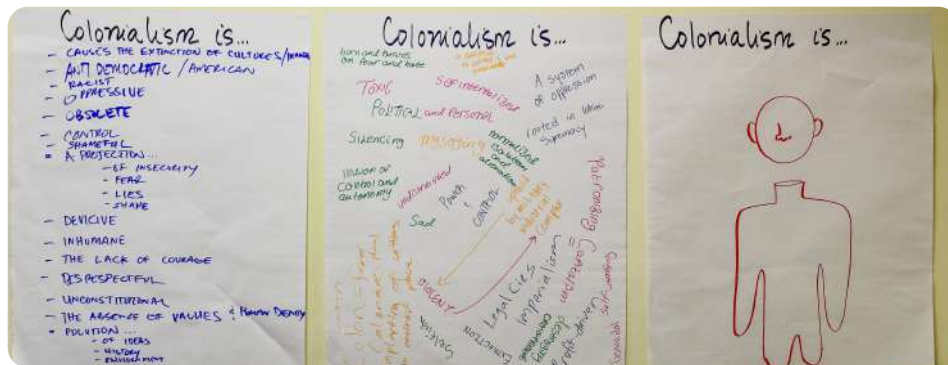 Colonialism is...
- CAUSES THE EXTINCTION OF CULTURES/
- ANTI DEMOCRATIC / AMERICAN
- RACIST
- OPPRESSIVE
- OBSOLETE
- CONTROL
- SHAMEFUL
- A PROJECTION...
- OF INSECURITY
- FEAR
- LIES
- SHAME
- DEVICIVE
- INHUMANE
- THE LACK OF COURAGE
- DISPESPECTFUL
- UNCONSTITUTIONAL
- THE ABSENCE OF VALUES & HUMAN DIGNITY
- POLUTION...
- OF IDEAS
- HISTORY
- ENVIRONMENT
Colonialism is...
born and thrives
on fear and hate
TOXIC
Self internalized
A system
of oppression
POLITICAL and PERSONAL
rooted in White
Supremacy
Silencing
misogyny
normalized
isolation
and
alienation
illusion of
Control and
autonomy
Power
&
CONTROL
Sad
by military
industrial
Complex
Patronizing
VIOLENT
Legalcies
Imperialism
EXTRACTION
Selfish
Colonialism is...